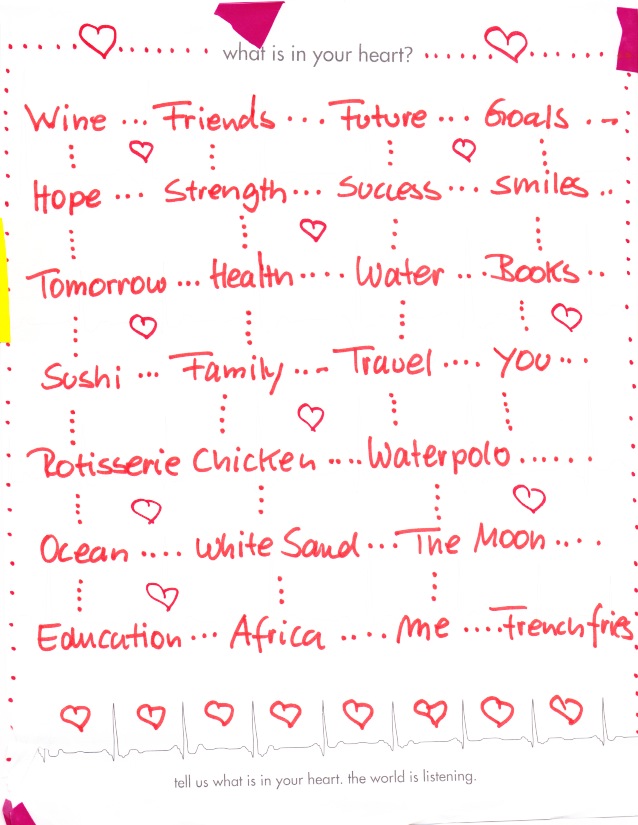 what is in your heart?
Wine ... Friends ... Future ... Goals ...
Hope ... Strength ... Success ... smiles ..
Tomorrow ... Health .... Water ... Books ..
Sushi ... Family ... Travel .... you ...
Rotisserie Chicken .... Waterpolo ......
Ocean .... White Sand ... The Moon ....
Education ... Africa .... me .... French fries
tell us what is in your heart. the world is listening.